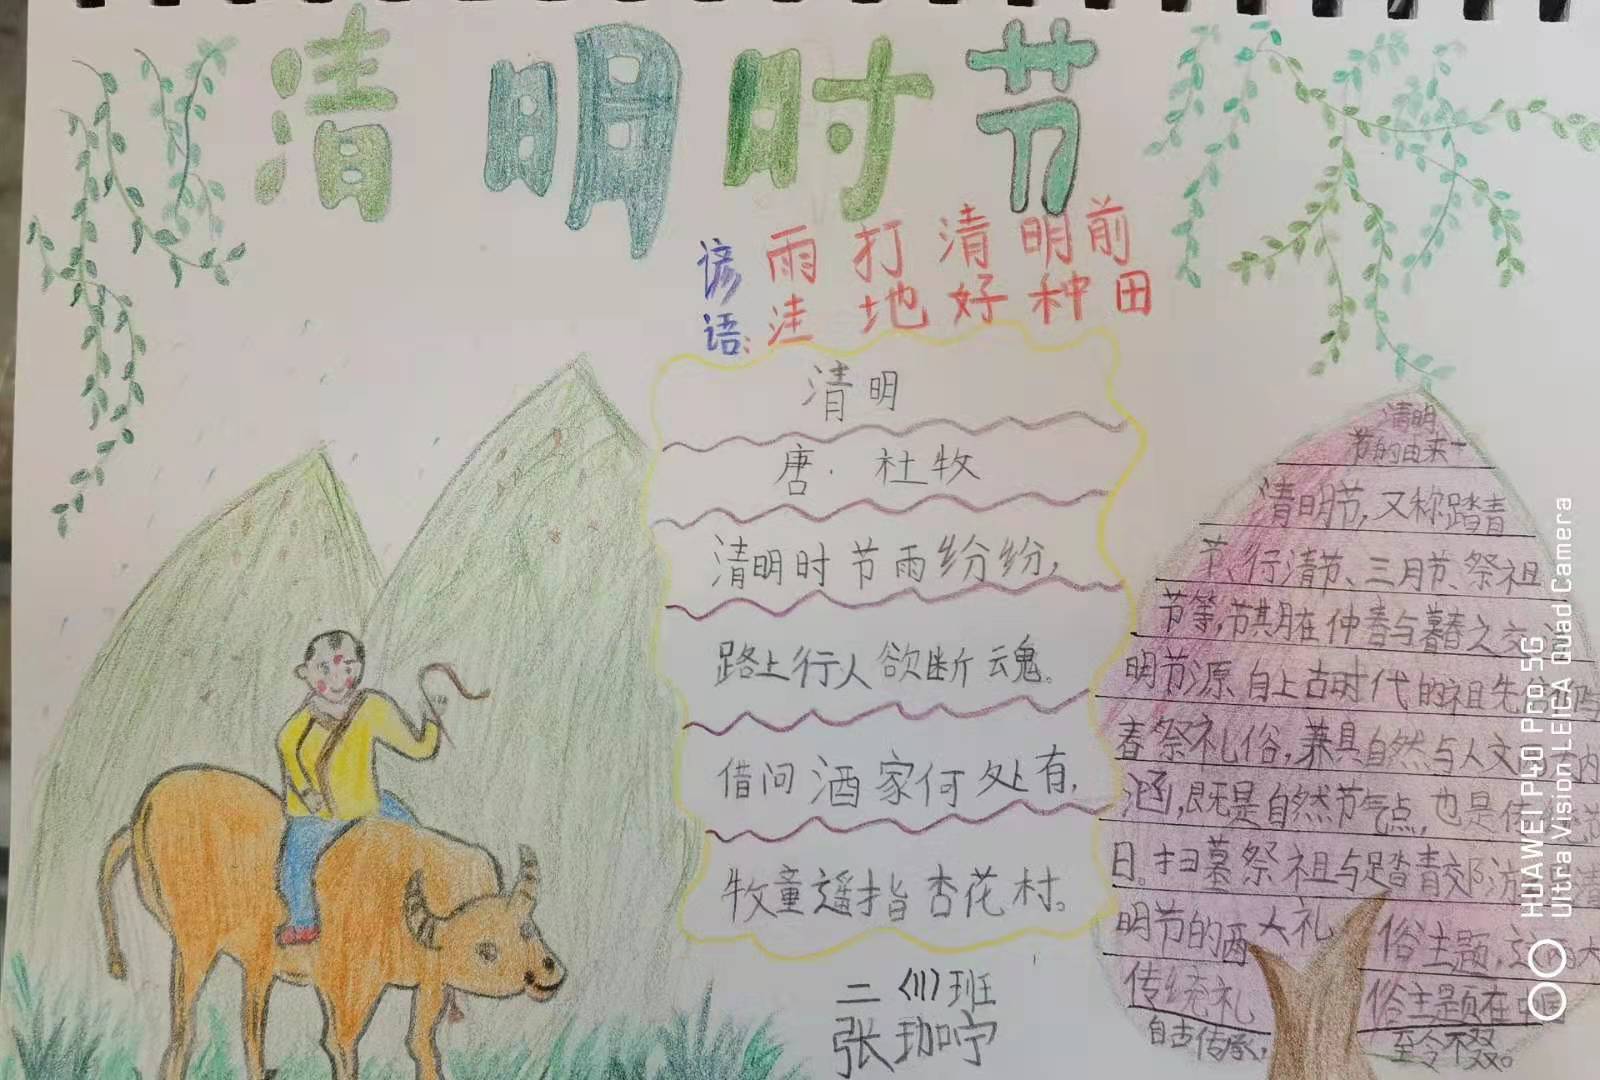 清明时节
谚语:
雨打清明前
洼地好种田
清明
唐·杜牧
清明时节雨纷纷,
路上行人欲断魂。
借问酒家何处有,
牧童遥指杏花村。
二(11)班
张珈咛
清明
节的由来
清明节,又称踏青
节、行清节、三月节、祭祖
节等,节期在仲春与暮春之交
明节源自上古时代的祖先信仰与
春祭礼俗,兼具自然与人文 内
涵,既是自然节气点,也是传统节
日。扫墓祭祖与踏青郊游 清
明节的两大礼俗主题,这两大
传统礼俗主题在中国
自古传承,至今不辍。
HUAWEI P40 Pro 5G
Ultra Vision LEICA Quad Camera